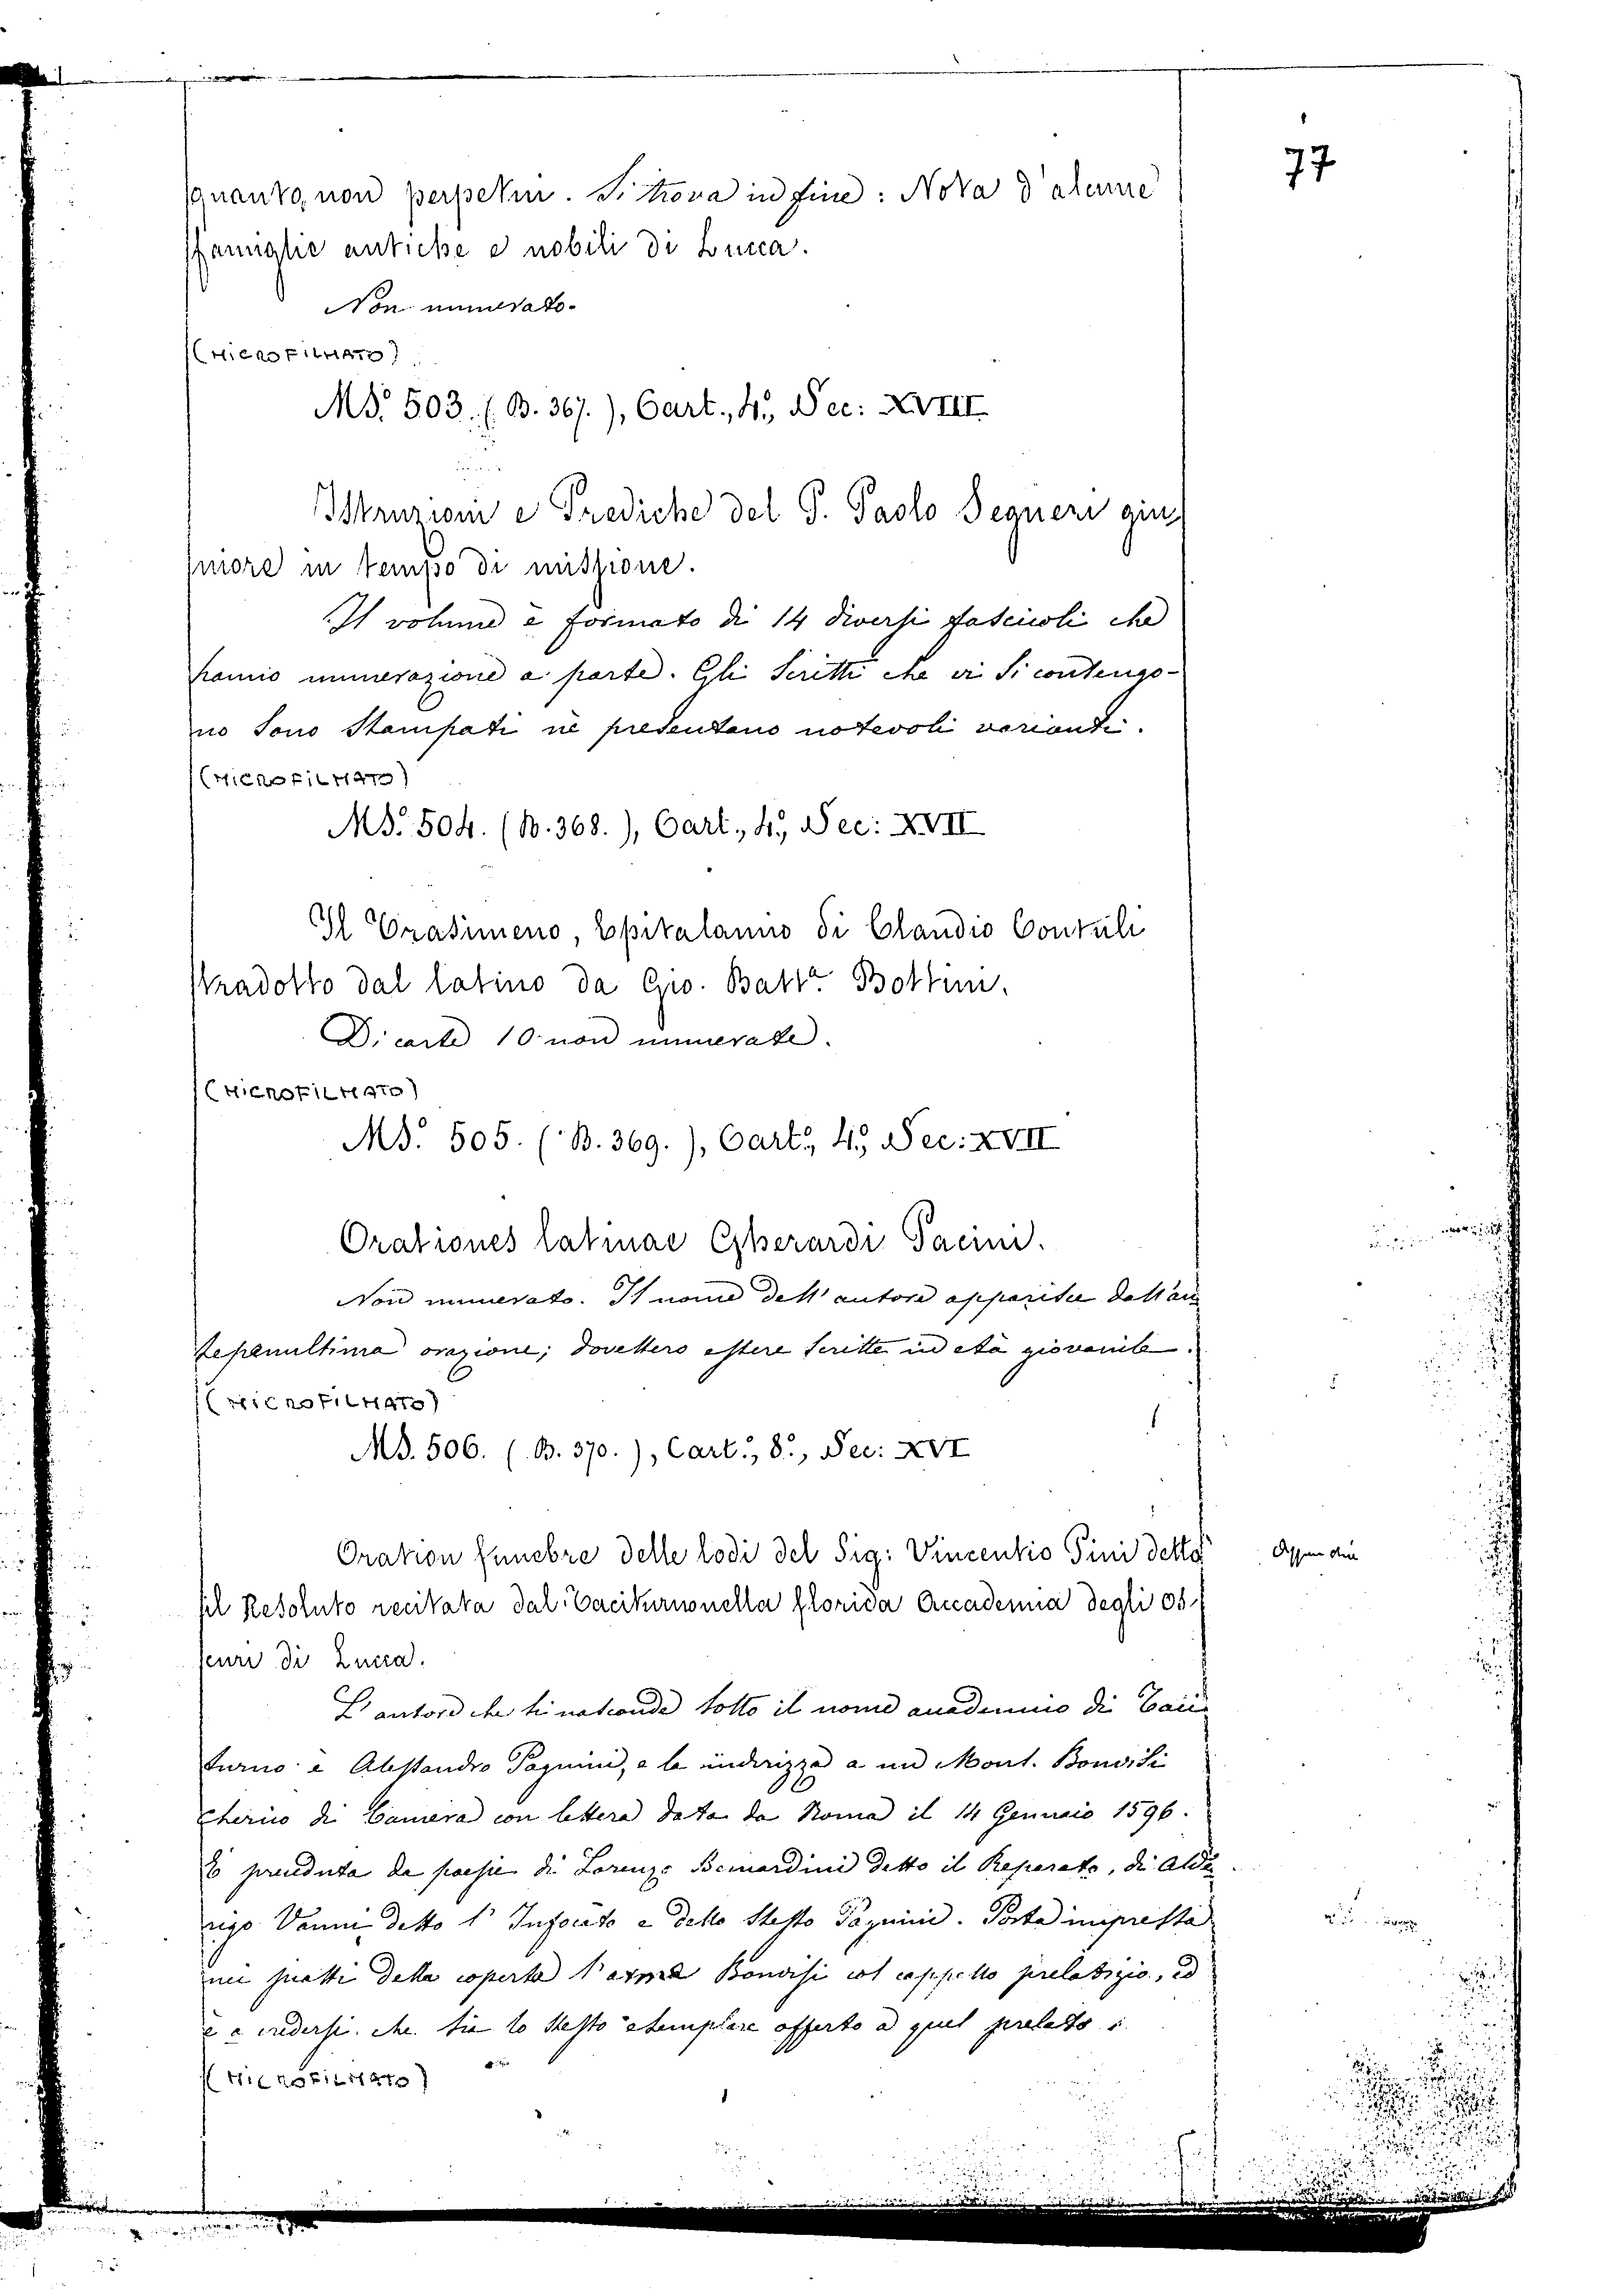 77
quanto, non perpetui. Si trova in fine: Nota d'alcune
famiglie antiche e nobili di Lucca.
Non numerato.
(MICROFILMATO)
MS. 503. (B. 367.), Cart., 4º, Sec: XVIII
Istruzioni e Prediche del P. Paolo Segneri giu
niore in tempo di missione.
Il volume è formato di 14 diversi fascicoli che
hanno numerazione a parte. Gli Scritti che vi si contengo-
no sono Stampati ne presentano notevoli varianti.
(MICROFILMATO)
MS. 504. (B. 368.), Cart., 4º, Sec: XVII
Il Trasimeno, Epitalamio di Claudio Contuli
tradotto dal latino da Gio. Battª Bottini.
Di carte 10 non numerate.
(MICROFILMATO)
MS. 505. (B. 369.), Cart., 4º, Sec: XVII
Orationes latinae Gherardi Pacini.
Non numerato. Il nome dell'autore apparisce dall'an
tepenultima orazione; dovettero essere scritte in età giovanile.
(MICROFILMATO)
MS. 506. (B. 370.), Cart., 8º, Sec: XVI
Oration funebre delle lodi del Sig: Vincentio Pini detto
il Resoluto recitata dal Taciturno nella florida Accademia degli os
scuri di Lucca.
L'autore che si nasconde sotto il nome accademico di Taci
turno è Alessandro Pagnini, e la indirizza a un Mons. Bonvisi
Cherico di Camera con lettera data da Roma il 14 Gennaio 1596.
È preceduta da poesie di Lorenzo Bernardini detto il Reparato, di Alde
rigo Vanni detto l'Infocato e dello Stesso Pagnini. Porta impressa
nei piatti della coperta l'arme Bonvisi col cappello prelatizio, ed
è a credersi che sia lo stesso esemplare offerto a quel prelato.
(MICROFILMATO)